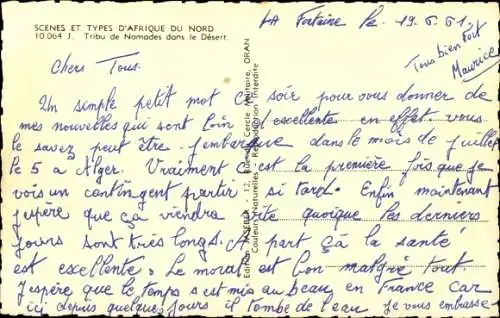 SCENES ET TYPES D'AFRIQUE DU NORD
10.064 J. Tribu de Nomades dans le Désert.
LA Fontaine Le 19.6.61.
Tous bien Fort
Maurice
Chers Tous.
Un simple petit mot ce soir pour vous donner de
mes nouvelles qui sont loin d'excellente en effet. vous
le savez peut être j'embarque dans le mois de juillet
le 5 a Alger. Vraiment c'est la première fois que je
vois un contingent partir si tard. Enfin maintenant
j'espère que ça viendra vite quoique les derniers
jours sont très longs. A part çà la santé
est excellente. Le moral est bon malgré tout.
J'espère que le temps s'est mis au beau en France car
ici depuis quelques jours il tombe de l'eau je vous embrasse
Edition JANSOL - 12, Rue du Cercle Militaire, ORAN
Couleurs Naturelles - Reproduction Interdite